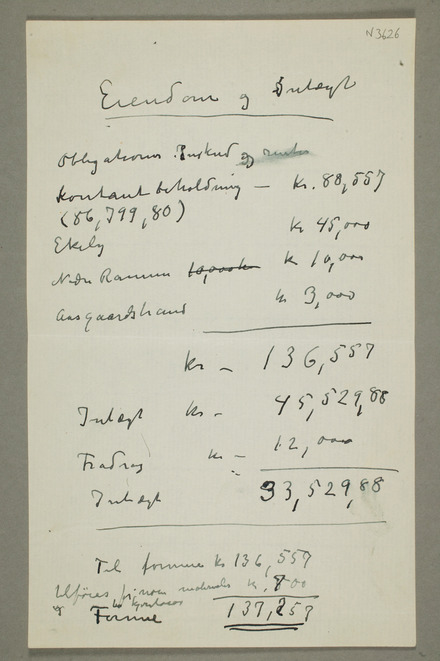 N 3626
Eiendom og Indtægt
Obligationer Indskud og renter
Kontant beholdning — kr. 88,557
(86,799,80)
Ekely kr 45,000
Nedre Ramme 10,000 kr kr 10,000
Aasgaardstrand kr 3,000
kr — 136,557
Indtægt kr — 45,529,88
Fradrag kr — 12,000
Indtægt 33,529,88
Til formue kr 136,557
kr. 700
og kontoer
Formue 137,257